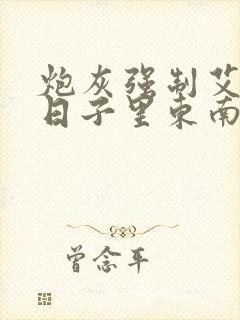 炮灰强制艾
日子里东南
曾念年